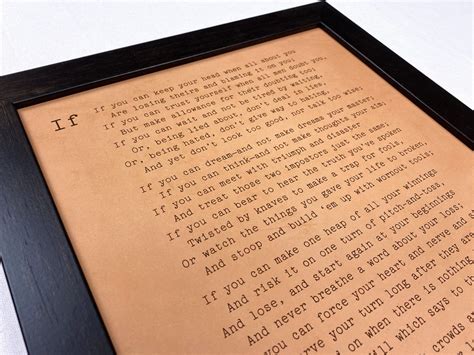 If
If you can keep your head when all about you
Are losing theirs and blaming it on you;
If you can trust yourself when all men doubt you,
But make allowance for their doubting too;
If you can wait and not be tired by waiting,
Or, being lied about, don't deal in lies,
Or, being hated, don't give way to hating,
And yet don't look too good, nor talk too wise;
If you can dream—and not make dreams your master;
If you can think—and not make thoughts your aim;
If you can meet with triumph and disaster
And treat those two impostors just the same;
If you can bear to hear the truth you've spoken
Twisted by knaves to make a trap for fools,
Or watch the things you gave your life to broken,
And stoop and build 'em up with wornout tools;
If you can make one heap of all your winnings
And risk it on one turn of pitch-and-toss,
And lose, and start again at your beginnings
And never breathe a word about your loss;
If you can force your heart and nerve and
serve your turn long after they
on when there is nothing
which says to
crowds